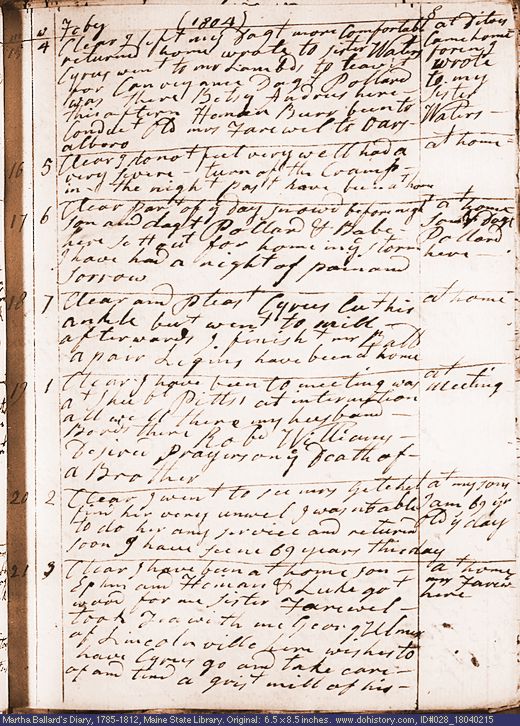 w Feby (1804)
15 4 Clear I left my Dagt more Comfortable at Ditons
returnd home wrote to sister Waters Came home
Cyrus went to mr Lambds to leav it foren &
for Conveyance Dagt Pollard wrote
was there Betsy Andrus here to my
this aftern Heman Burr been to sister
Conduct old mrs Farewel to Vass- Waters-
alboro
16 5 Clear I do not feel very well had a at home-
very severe turn of the Cramp
in the night past have been at home
17 6 Clear part of y day snowd before night at home
son and dagt Pollard & Babe Son & dagt
here sett out for home in y storm Pollard
I have had a night of pain and here-
sorrow
18 7 Clear and pleast Cyrus Cut his at home-
ankle but went to mill
afterwards I finisht mr Ball
a pair Legins have been at home
19 1 Clear I have been to meeting was at
at Shubl Pitts's at intermition meeting
and we all there my husband-
Bord there Robe Williams-
desired prayers on y Death of-
a Brother
20 2 Clear I went to see mrs Getchel at my sons
find her very unwel I was unable I am 69 yr
to do her any service and returnd old y day
soon I have seene 69 years this day
21 3 Clear I have been at home son- at home
Ephm and Heman & Luke got mrs Farewel
wood for me sister Farewel- here
took Tea with me Georg Ulmer
of Lincolnville here wishes to
have Cyrus go and take care-
of and tend a grist mill of his-
Martha Ballard's Diary, 1785-1812, Maine State Library. Original: 6.5 x 8.5 inches. www.dohistory.org, ID#028_18040215